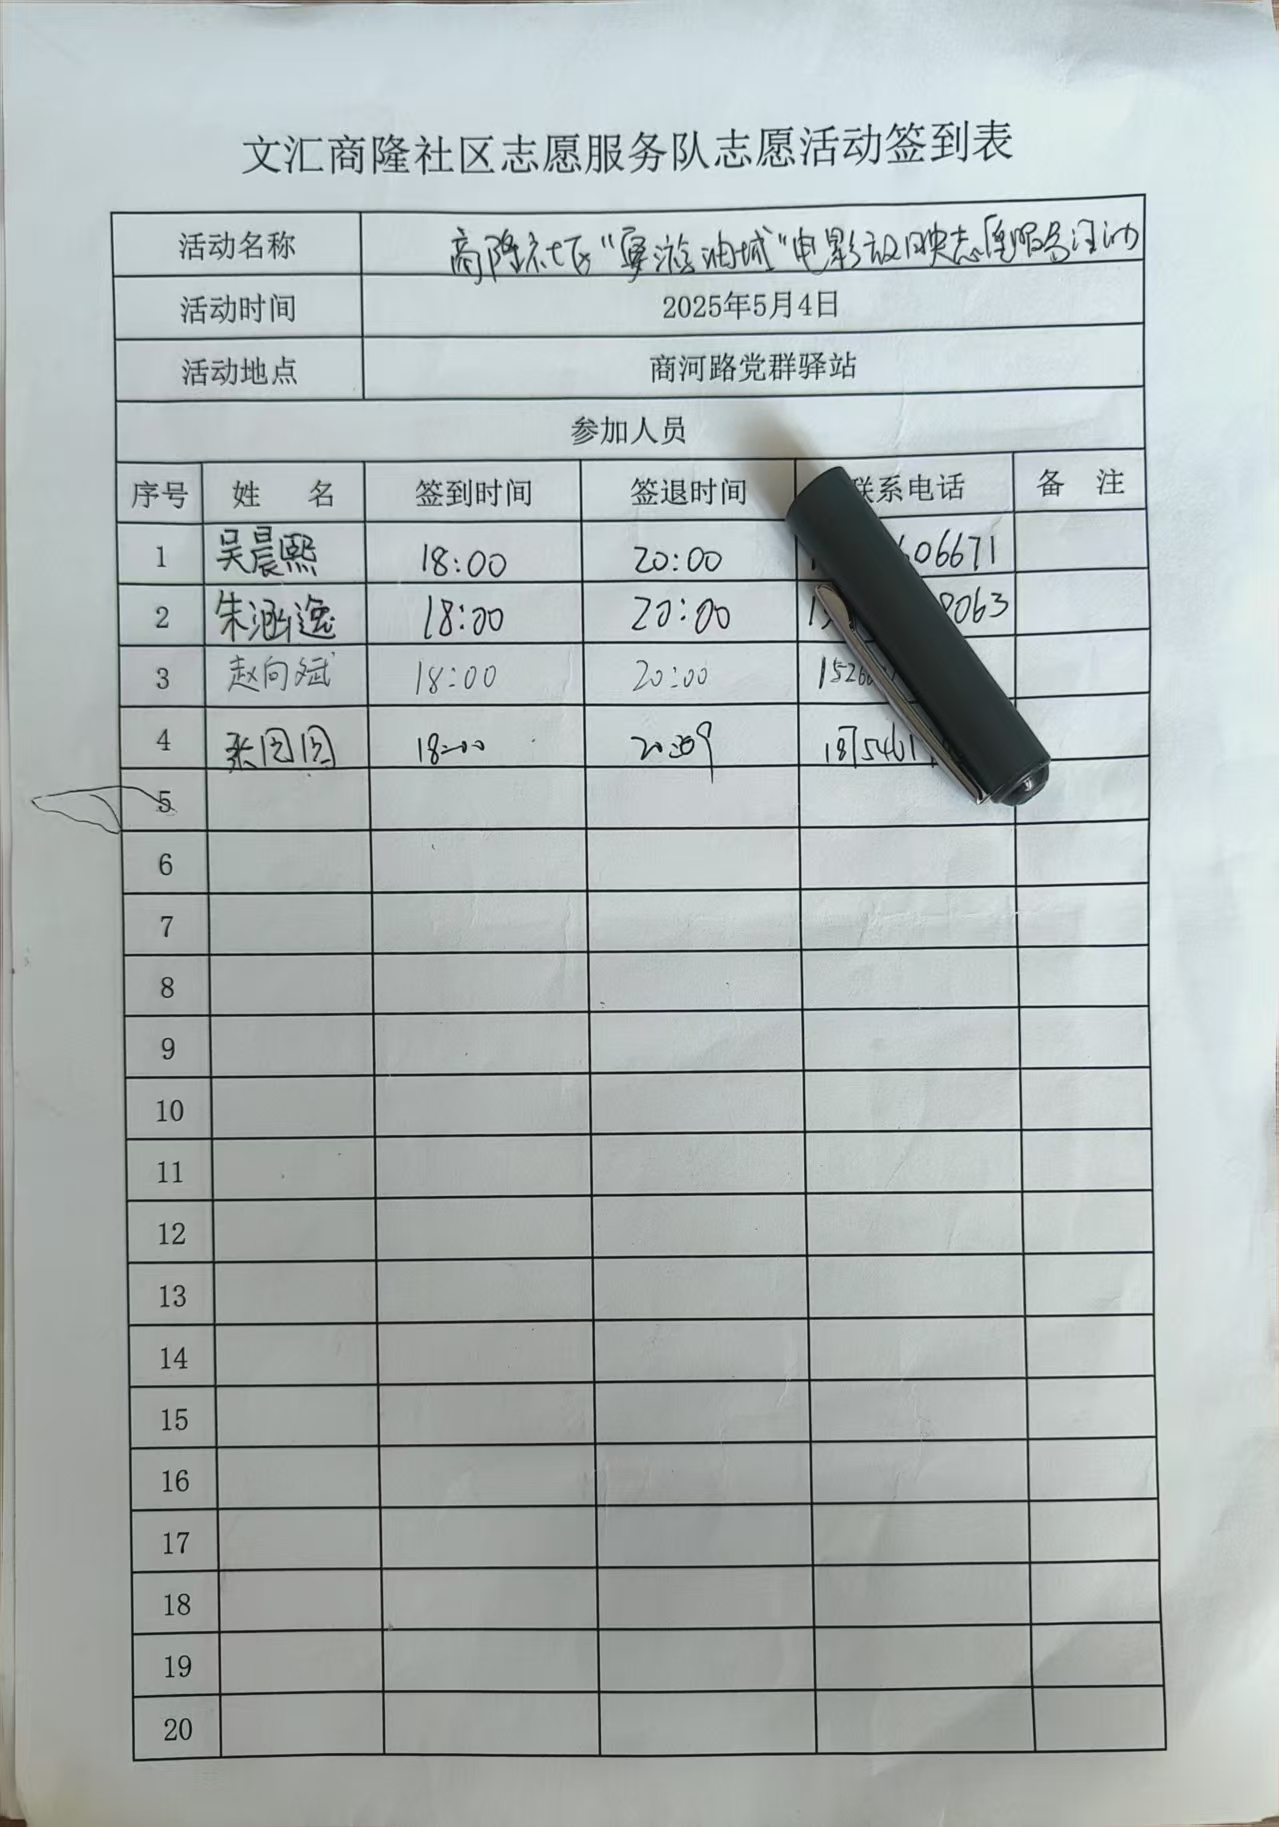 文汇商隆社区志愿服务队志愿活动签到表
活动名称 商隆社区“ 油城”电影放映志愿服务活动
活动时间 2025年5月4日
活动地点 商河路党群驿站
参加人员
序号 姓 名 签到时间 签退时间 联系电话 备 注
1 吴晨熙 18:00 20:00 606671
2 朱涵逸 18:00 20:00 8063
3 赵向斌 18:00 20:00 1526
4 张圆圆 18:00 187546
5
6
7
8
9
10
11
12
13
14
15
16
17
18
19
20